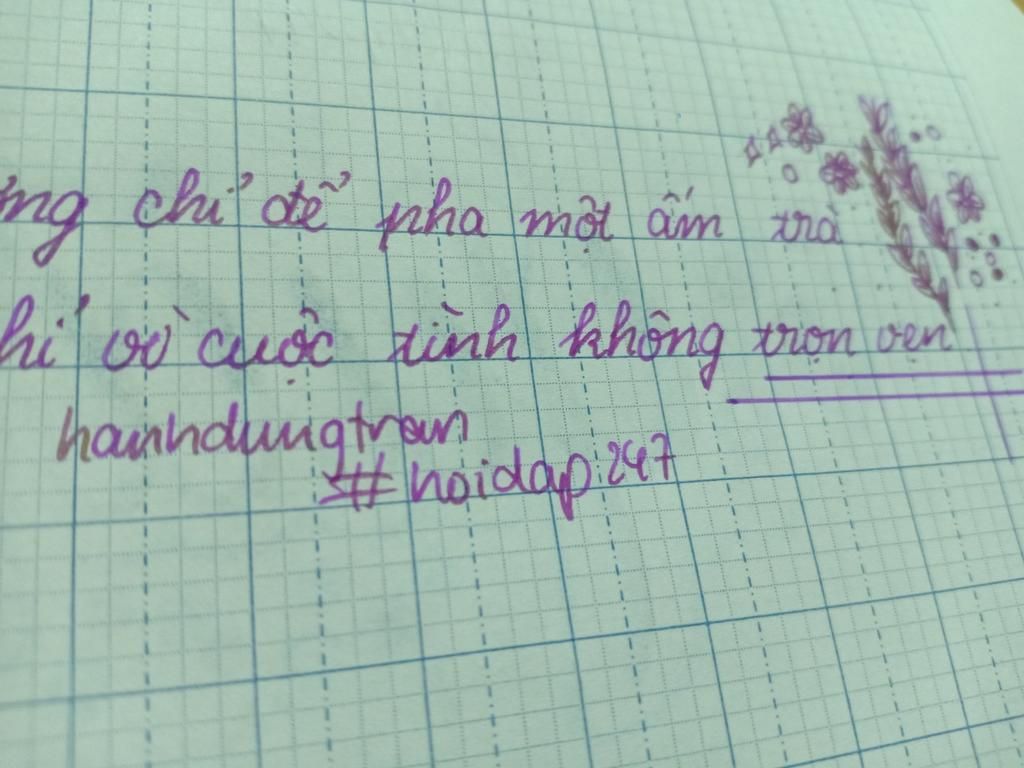 chỉ để pha một ấm trà
vì cuộc tình không trọn vẹn
hanhdungtran
#hoidap247